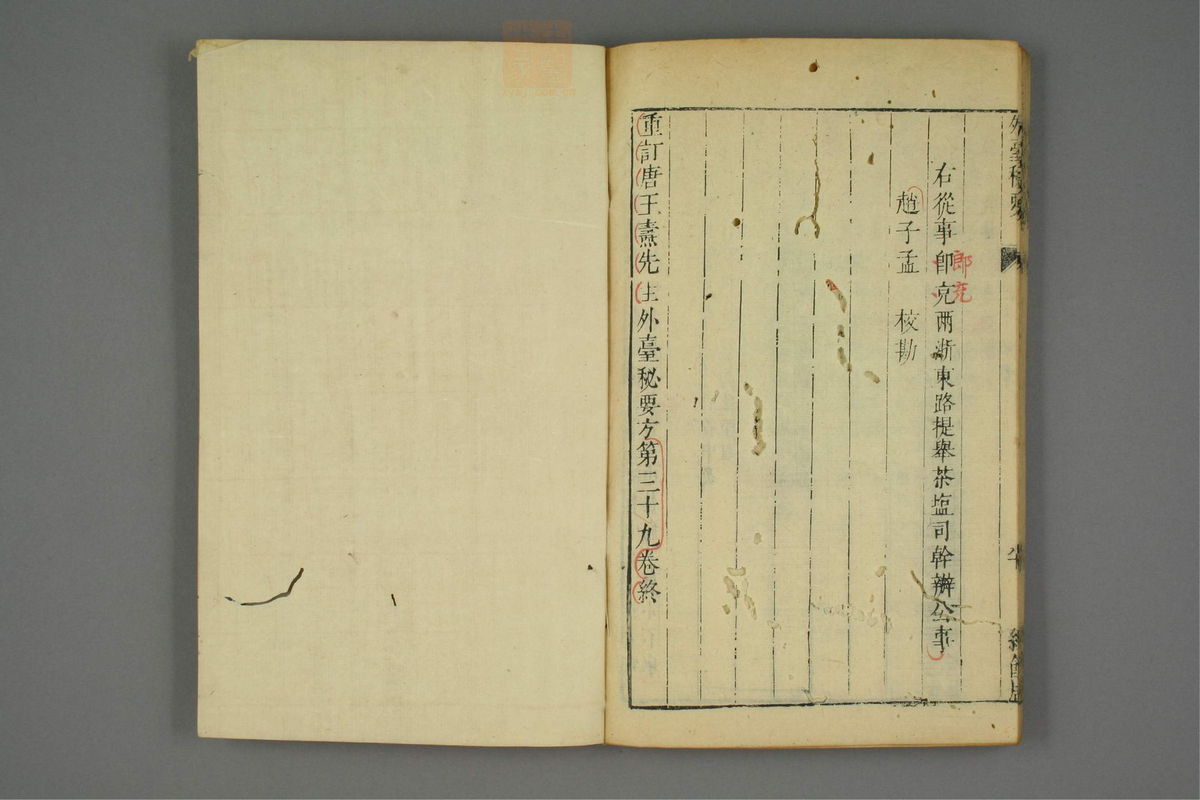 外臺秘要
右從事郎克兩浙東路提舉茶塩司幹辦公事
郎充
趙子孟　校勘
重訂唐王燾先生外臺秘要方第三十九卷終